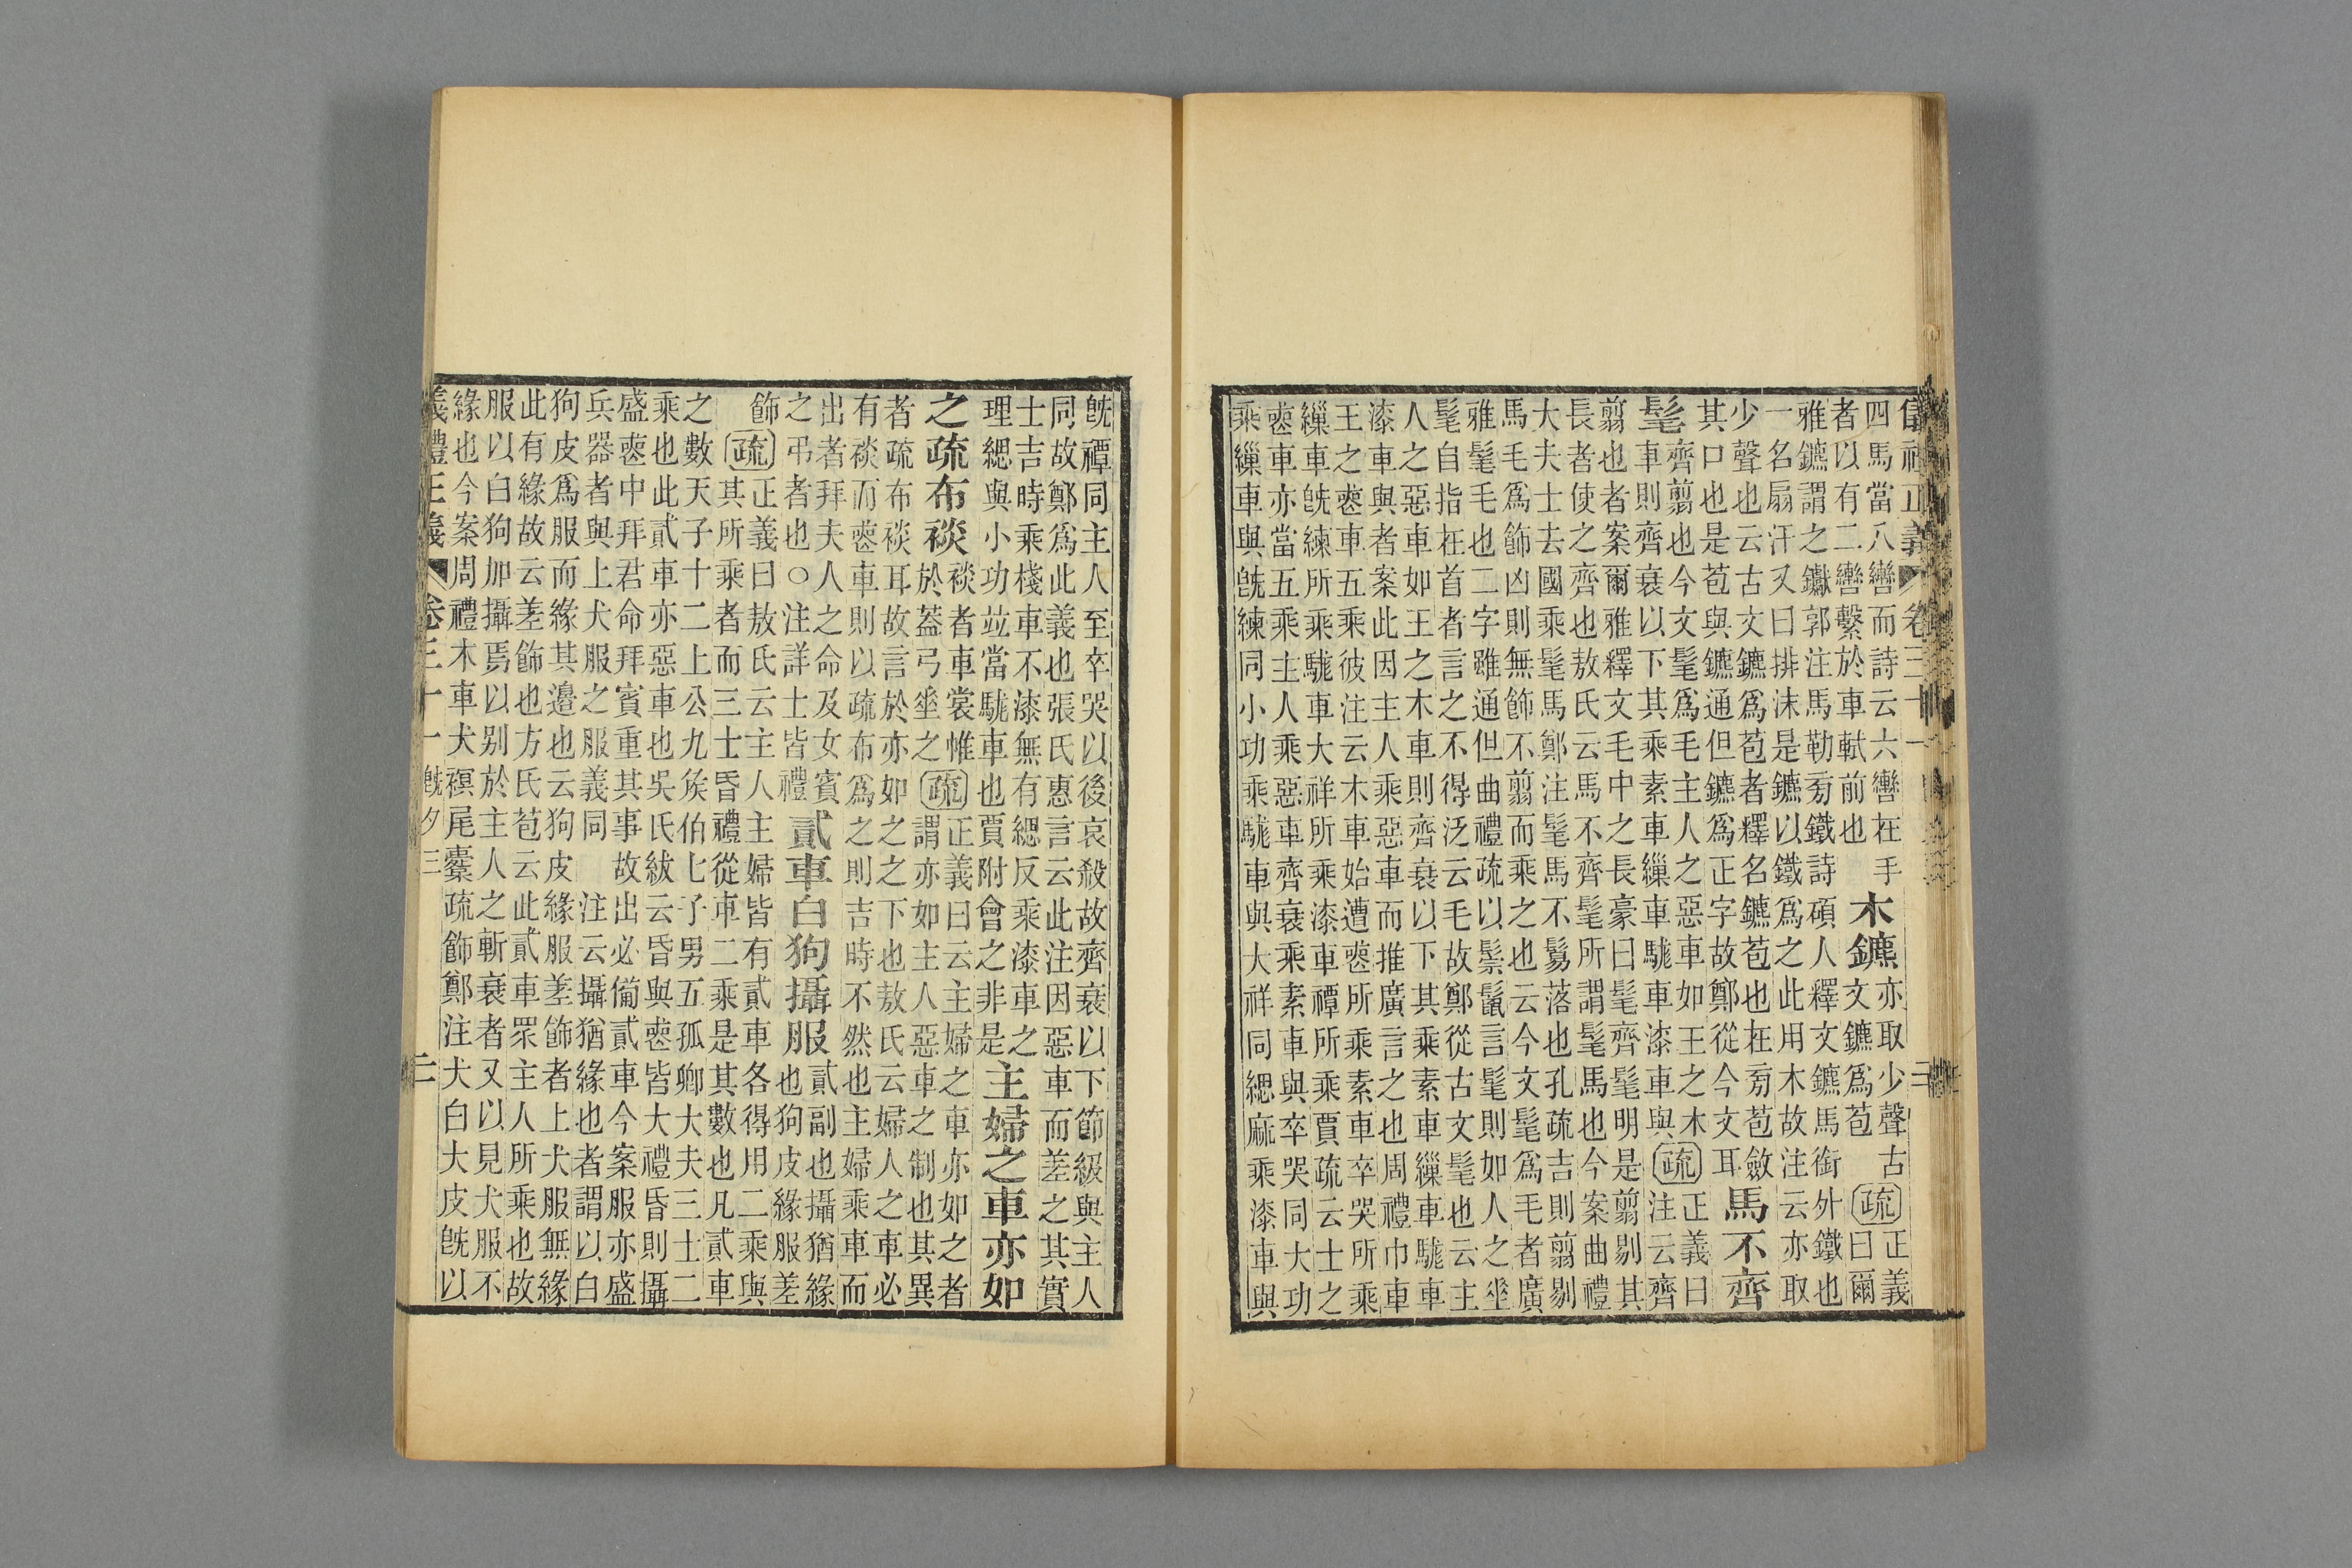 儀禮正義 卷三十一
四馬當八轡而詩云六轡在手
者以有二轡繫於車軾前也
木鑣
亦取少聲古
文鑣爲苞
疏
正義
曰爾
雅鑣謂之钀郭注馬勒旁鐵詩碩人釋文鑣馬銜外鐵也
一名扇汗又曰排沫是鑣以鐵爲之此用木故注云亦取
少聲也云古文鑣爲苞者釋名鑣苞也在旁苞斂
其口也是苞與鑣通但鑣爲正字故鄭從今文耳
馬不齊
髦
齊翦也今文髦爲毛主人之惡車如王之木
車則齊衰以下其乘素車繅車駹車漆車與
疏
正義曰
注云齊
翦也者案爾雅釋文毛中之長豪曰髦齊髦明是翦剔其
長者使之齊也敖氏云馬不齊髦所謂髦馬也今案曲禮
大夫士去國乘髦馬鄭注髦馬不鬄落也孔疏吉則翦剔
馬毛爲飾凶則無飾不翦而乘之也云今文髦爲毛者廣
雅髦毛也二字雖通但曲禮疏以鬃鬣言髦則如人之坐
髦自指在首者言之不得泛云毛故鄭從古文髦也云主
人之惡車如王之木車則齊衰以下其乘素車繅車駹車
漆車與者案此因主人乘惡車而推廣言之也周禮巾車
王之喪車五乘彼注云木車始遭喪所乘素車卒哭所乘
繅車旣練所乘駹車大祥所乘漆車禫所乘賈疏云士之
喪車亦當五乘主人乘惡車齊衰乘素車與卒哭同大功
乘繅車與旣練同小功乘駹車與大祥同緦麻乘漆車與
旣禫同主人至卒哭以後哀殺故齊衰以下節級與主人
同故鄭爲此義也張氏惠言云此注因惡車而差之其實
士吉時乘棧車不漆無有緦反乘漆車之
理緦與小功竝當駹車也賈附會之非是
主婦之車亦如
之疏布裧
裧者車裳帷
於蓋弓坐之
疏
正義曰云主婦之車亦如之者
謂亦如主人惡車之制也其異
者疏布裧耳故言於亦如之之下也敖氏云婦人之車必
有裧而喪車則以疏布爲之則吉時不然也主婦乘車而
出者拜夫人之命及女賓
之弔者也○注詳士皆禮
貳車白狗攝服
貳副也攝猶緣
也狗皮緣服差
飾
疏
正義曰敖氏云主人主婦皆有貳車各得用二乘與
其所乘者而三士昏禮從車二乘是其數也凡貳車
之數天子十二上公九矦伯七子男五孤卿大夫三士二
乘也此貳車亦惡車也吳氏紱云昏與喪皆大禮昏則攝
盛喪中拜君命拜賓重其事故出必備貳車今案服亦盛
兵器者與上犬服之服義同 注云攝猶緣也者謂以白
狗皮爲服而緣其邊也云狗皮緣服差飾者上犬服無緣
此有緣故云差飾也方氏苞云此貳車眾主人所乘也故
服以白狗加攝焉以别於主人之斬衰者又以見犬服不
緣也今案周禮木車犬𧜀尾櫜疏飾鄭注犬白犬皮旣以
儀禮正義 卷三十一 旣夕三 二